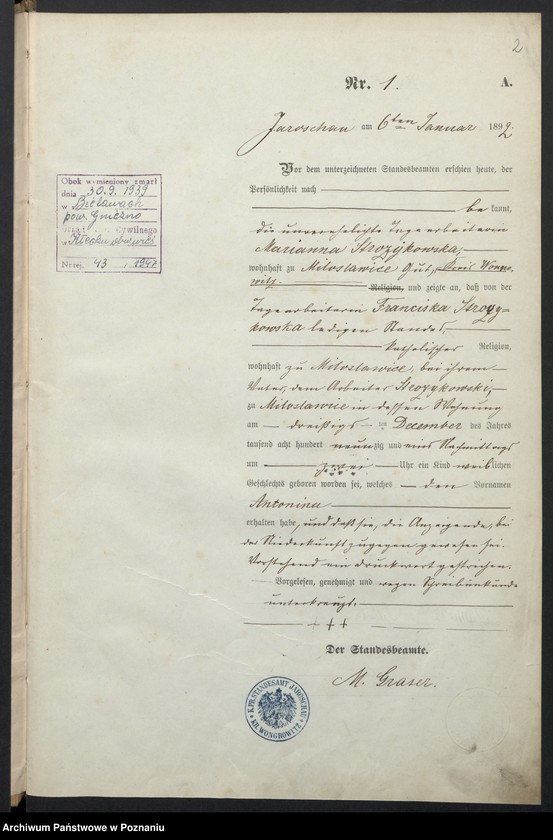 2
Nr. 1. A.
Jaroschau am 6ten Januar 1892.
Vor dem unterzeichneten Standesbeamten erschien heute, der
Persönlichkeit nach
bekannt,
die unverehelichte Tagearbeiterin
Marianna Strozykowska,
wohnhaft zu Miloslawice Gut, Kreis Wongro-
witz.
Religion, und zeigte an, daß von der
Tagearbeiterin Franciska Strozy-
kowska ledigen Standes,
katholischer Religion,
wohnhaft zu Miloslawice, bei ihrem
Vater, dem Arbeiter Strozykowski,
zu Miloslawice in dessen Wohnung
am dreißigs ten December des Jahres
tausend acht hundert neunzig und eins Nachmittags
um zwei Uhr ein Kind weiblichen
Geschlechts geboren worden sei, welches den Vornamen
Antonina
erhalten habe, und daß sie, die Anzeigende, bei
der Niederkunft zugegen gewesen sei.
Vorstehend ein Druckwort gestrichen.
Vorgelesen, genehmigt und wegen Schreibunkunde
unterkreuzt.
+++
Der Standesbeamte.
M. Graser.
Obok wymieniony zmarł
dnia 30.9.1939
w Bielawach
pow. Gniezno
Cywilnego
w Kłecku obozwieś
Nr rej. 43 / 1947
K. PR. STANDESAMT JAROSCHAU
KR. WONGROWITZ
Archiwum Państwowe w Poznaniu